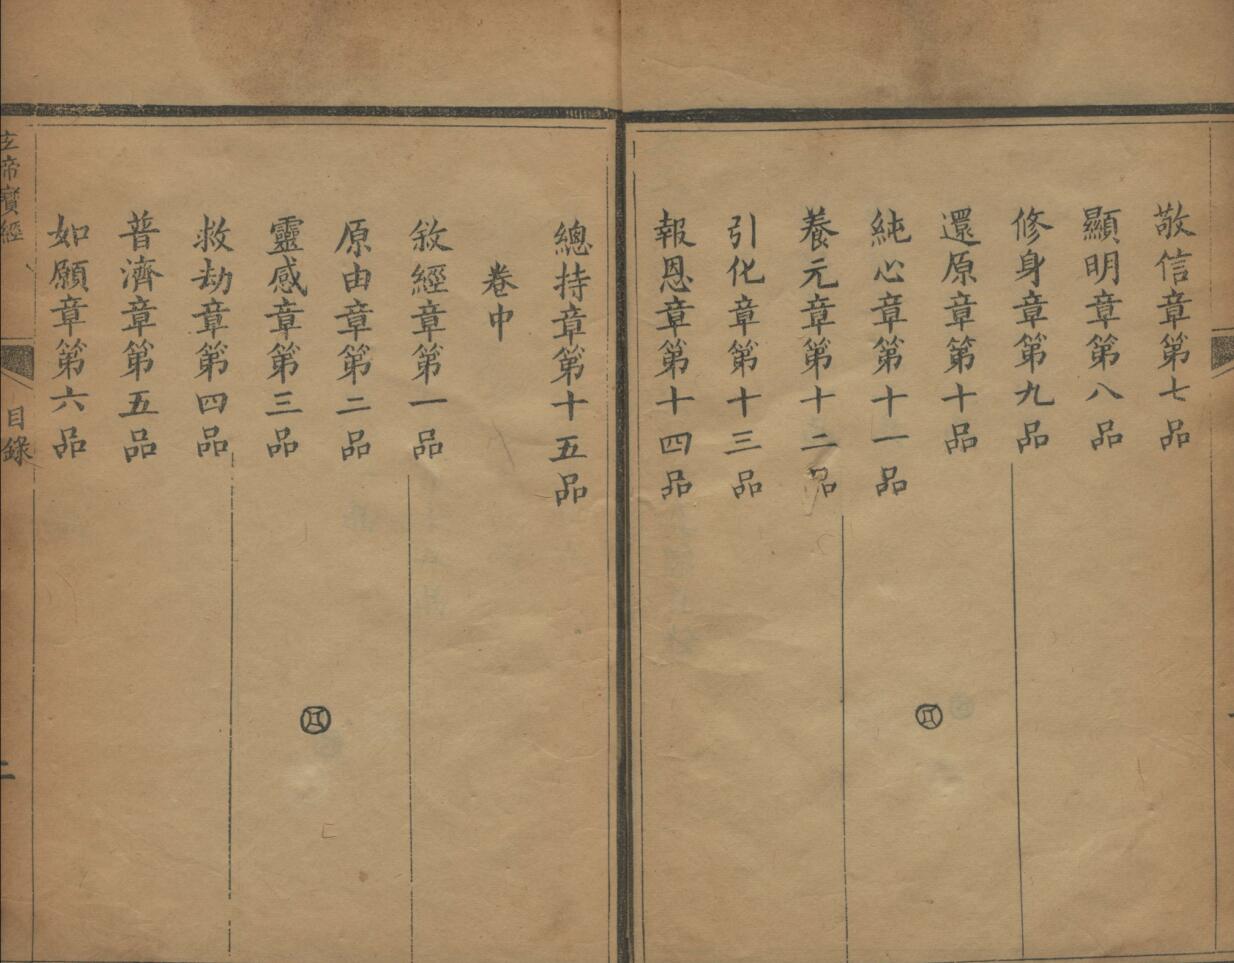 敬信章第七品
顯明章第八品
修身章第九品
還原章第十品
純心章第十一品
養元章第十二品
引化章第十三品
報恩章第十四品
總持章第十五品
卷中
敘經章第一品
原由章第二品
靈感章第三品
救劫章第四品
普濟章第五品
如願章第六品
玄帝寶經
目錄
二